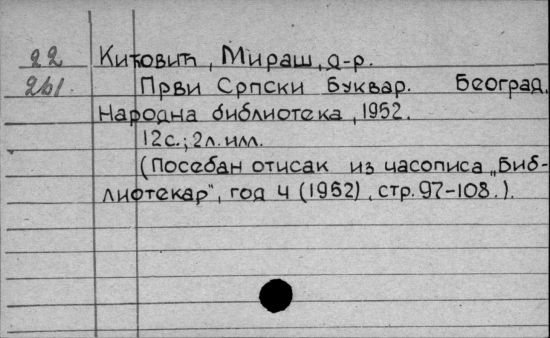 22 Кићовић, Мираш, д-р.
261. Први Српски Буквар. Београд,
Народна библиотека, 1952.
12с.; 2л. илл.
(Посебан отисак из часописа „Биб-
лиотекар", год 4 (1952), стр. 97-108.).